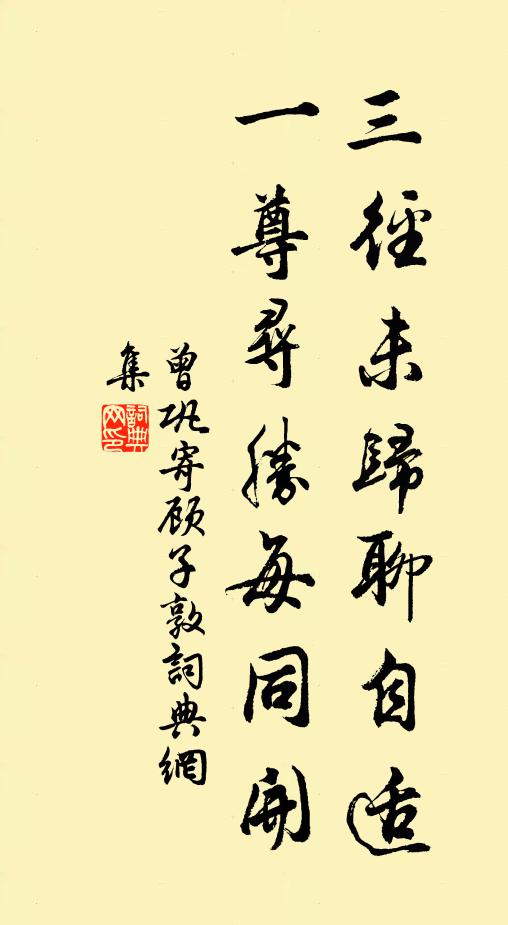 三徑未歸聊自适
一尊尋勝每同開
曾巩寄顾子敦詞典網
集
詞典
网印